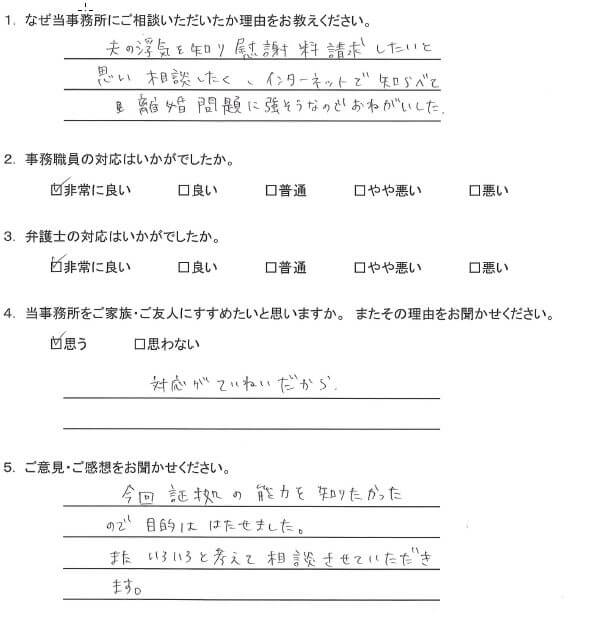 1. なぜ当事務所にご相談いただいたか理由をお教えください。
夫の浮気を知り慰謝料請求したいと
思い相談したく、インターネットで知らべて
離婚問題に強そうなのでおねがいした.
2. 事務職員の対応はいかがでしたか。
☑非常に良い □良い □普通 □やや悪い □悪い
3. 弁護士の対応はいかがでしたか。
☑非常に良い □良い □普通 □やや悪い □悪い
4. 当事務所をご家族・ご友人にすすめたいと思いますか。 またその理由をお聞かせください。
☑思う □思わない
対応がていねいだから.
5. ご意見・ご感想をお聞かせください。
今回証拠の能力を知りたかった
ので目的ははたせました。
またいろいろと考えて相談させていただき
ます。